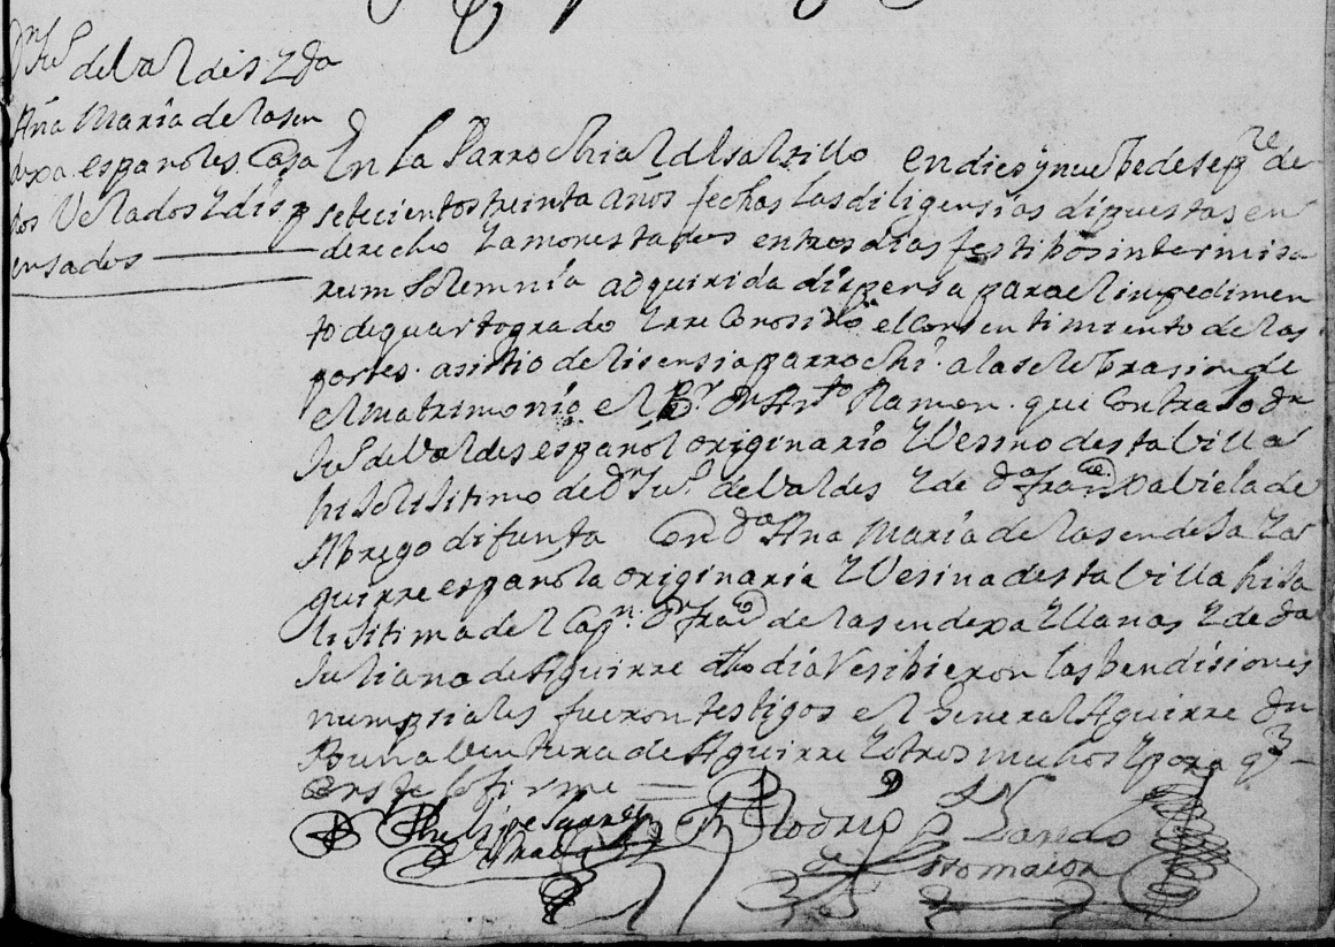 Dn Jus de Valdes y Da
Ana Maria de Lasen
depa españoles Casa
dos Velados y disp
ensados
En la Parrochial del saltillo en dies y nuebe de sepre de
setecientos treinta años fechas las diligensias dipuestas en
derecho y amonestados en tres dias festibos inter misa
rum solemnia adquirida dispensa para el inpedimen
to de quarto grado y rreconosido el consentimiento de las
partes. asistio de lisensia parrochl. a la selebrasion de
el matrimonio el Br. Dn Anto Ramon. que contrajo dn
Jus de Valdes español originario y Vesino desta Villa
hijo lijitimo de Dn Jus. de Valdes y de Da Franca Xabiela de
Abrego difunta Con Da Ana Maria de Lasendeja y A
guirre española originaria y Vesina desta Villa hija
lijitima del Capn. Dn Franco de Lasendexa Llanos y de Da
Juliana de Aguirre dho dia Resibieron las bendisiones
numpsiales fueron testigos el General Aguirre Dn
Buena Ventura de Aguirre y otros muchos y para q
conste lo firme
Phelipe Suarez
de Estrada